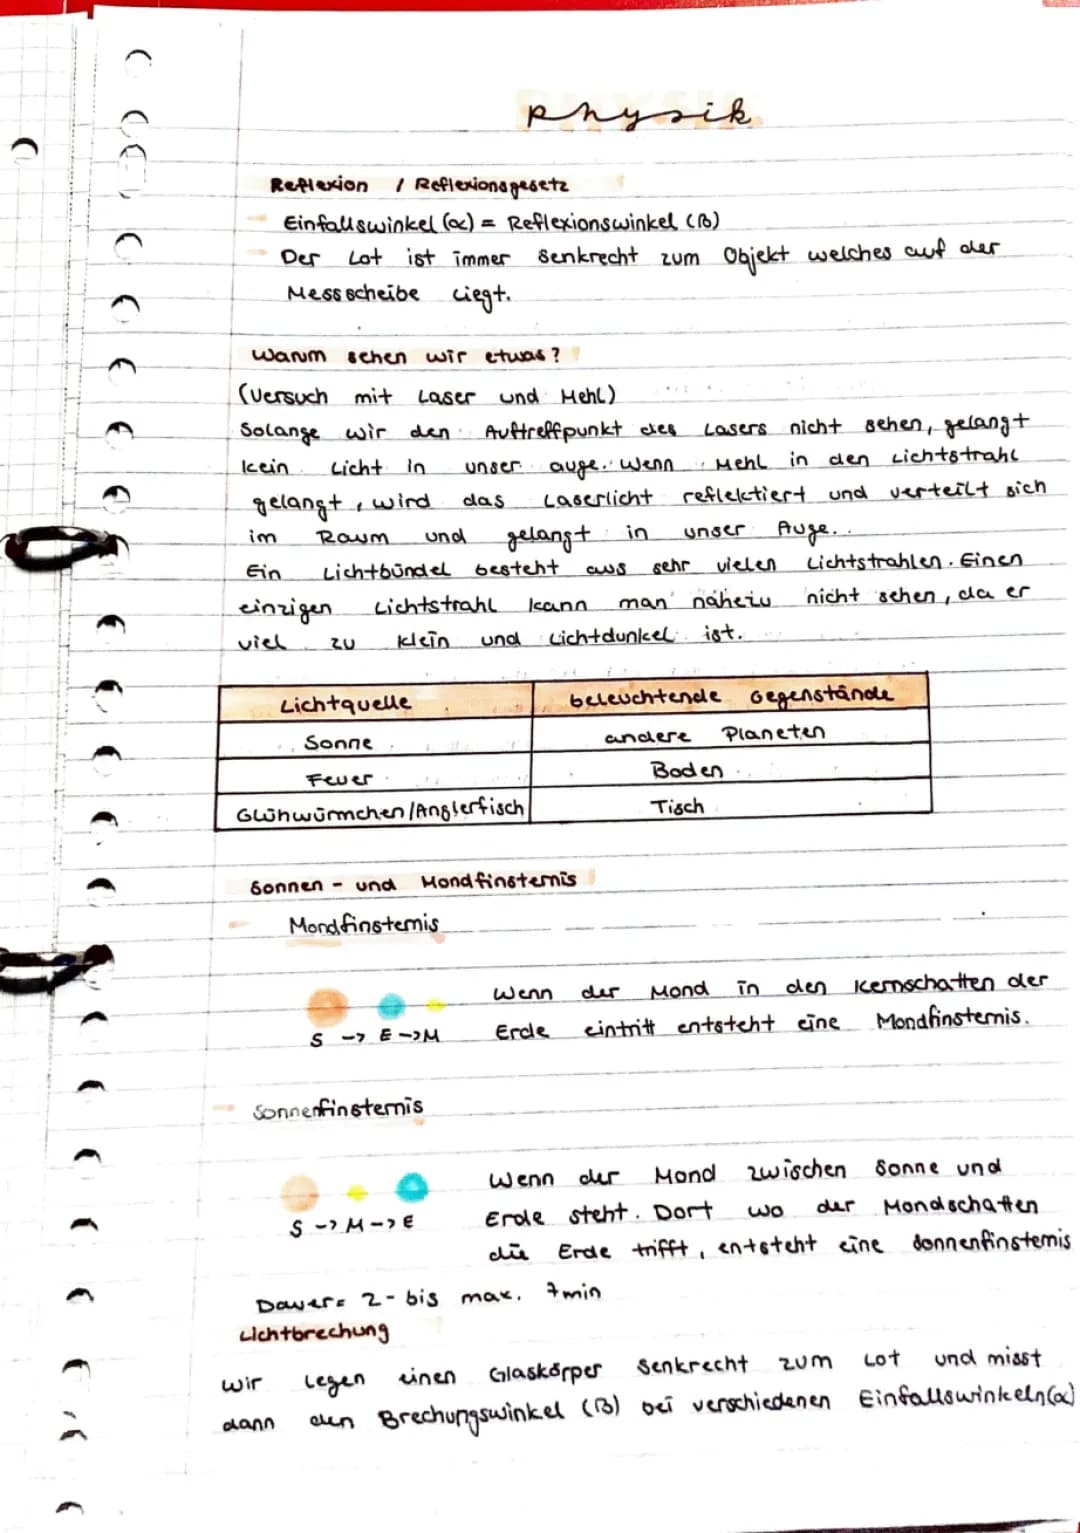 Physik
Reflexion / Reflexionsgesetz
- Einfallswinkel (α) = Reflexionswinkel (β)
- Der Lot ist immer senkrecht zum Objekt welches auf der
Messscheibe liegt.
Warum sehen wir etwas?
(Versuch mit Laser und Mehl)
Solange wir den Auftreffpunkt des Lasers nicht sehen, gelangt
kein Licht in unser auge. Wenn Mehl in den Lichtstrahl
gelangt, wird das Laserlicht reflektiert und verteilt sich
im Raum und gelangt in unser Auge.
Ein Lichtbündel besteht aus sehr vielen Lichtstrahlen. Einen
einzigen Lichtstrahl kann man nahezu nicht sehen, da er
viel zu klein und Lichtdunkel ist.
Lichtquelle beleuchtende Gegenstände
Sonne andere Planeten
Feuer Boden
Glühwürmchen/Anglerfisch Tisch
Sonnen - und Mondfinsternis
- Mondfinsternis
Wenn der Mond in den Kernschatten der
S -> E -> M Erde eintritt entsteht eine Mondfinsternis.
- Sonnenfinsternis
Wenn der Mond zwischen Sonne und
S -> M -> E Erde steht. Dort wo der Mondschatten
die Erde trifft, entsteht eine Sonnenfinsternis
Dauer= 2- bis max. 7min
Lichtbrechung
Wir legen einen Glaskörper senkrecht zum Lot und misst
dann den Brechungswinkel (β) bei verschiedenen Einfallswinkeln(α)